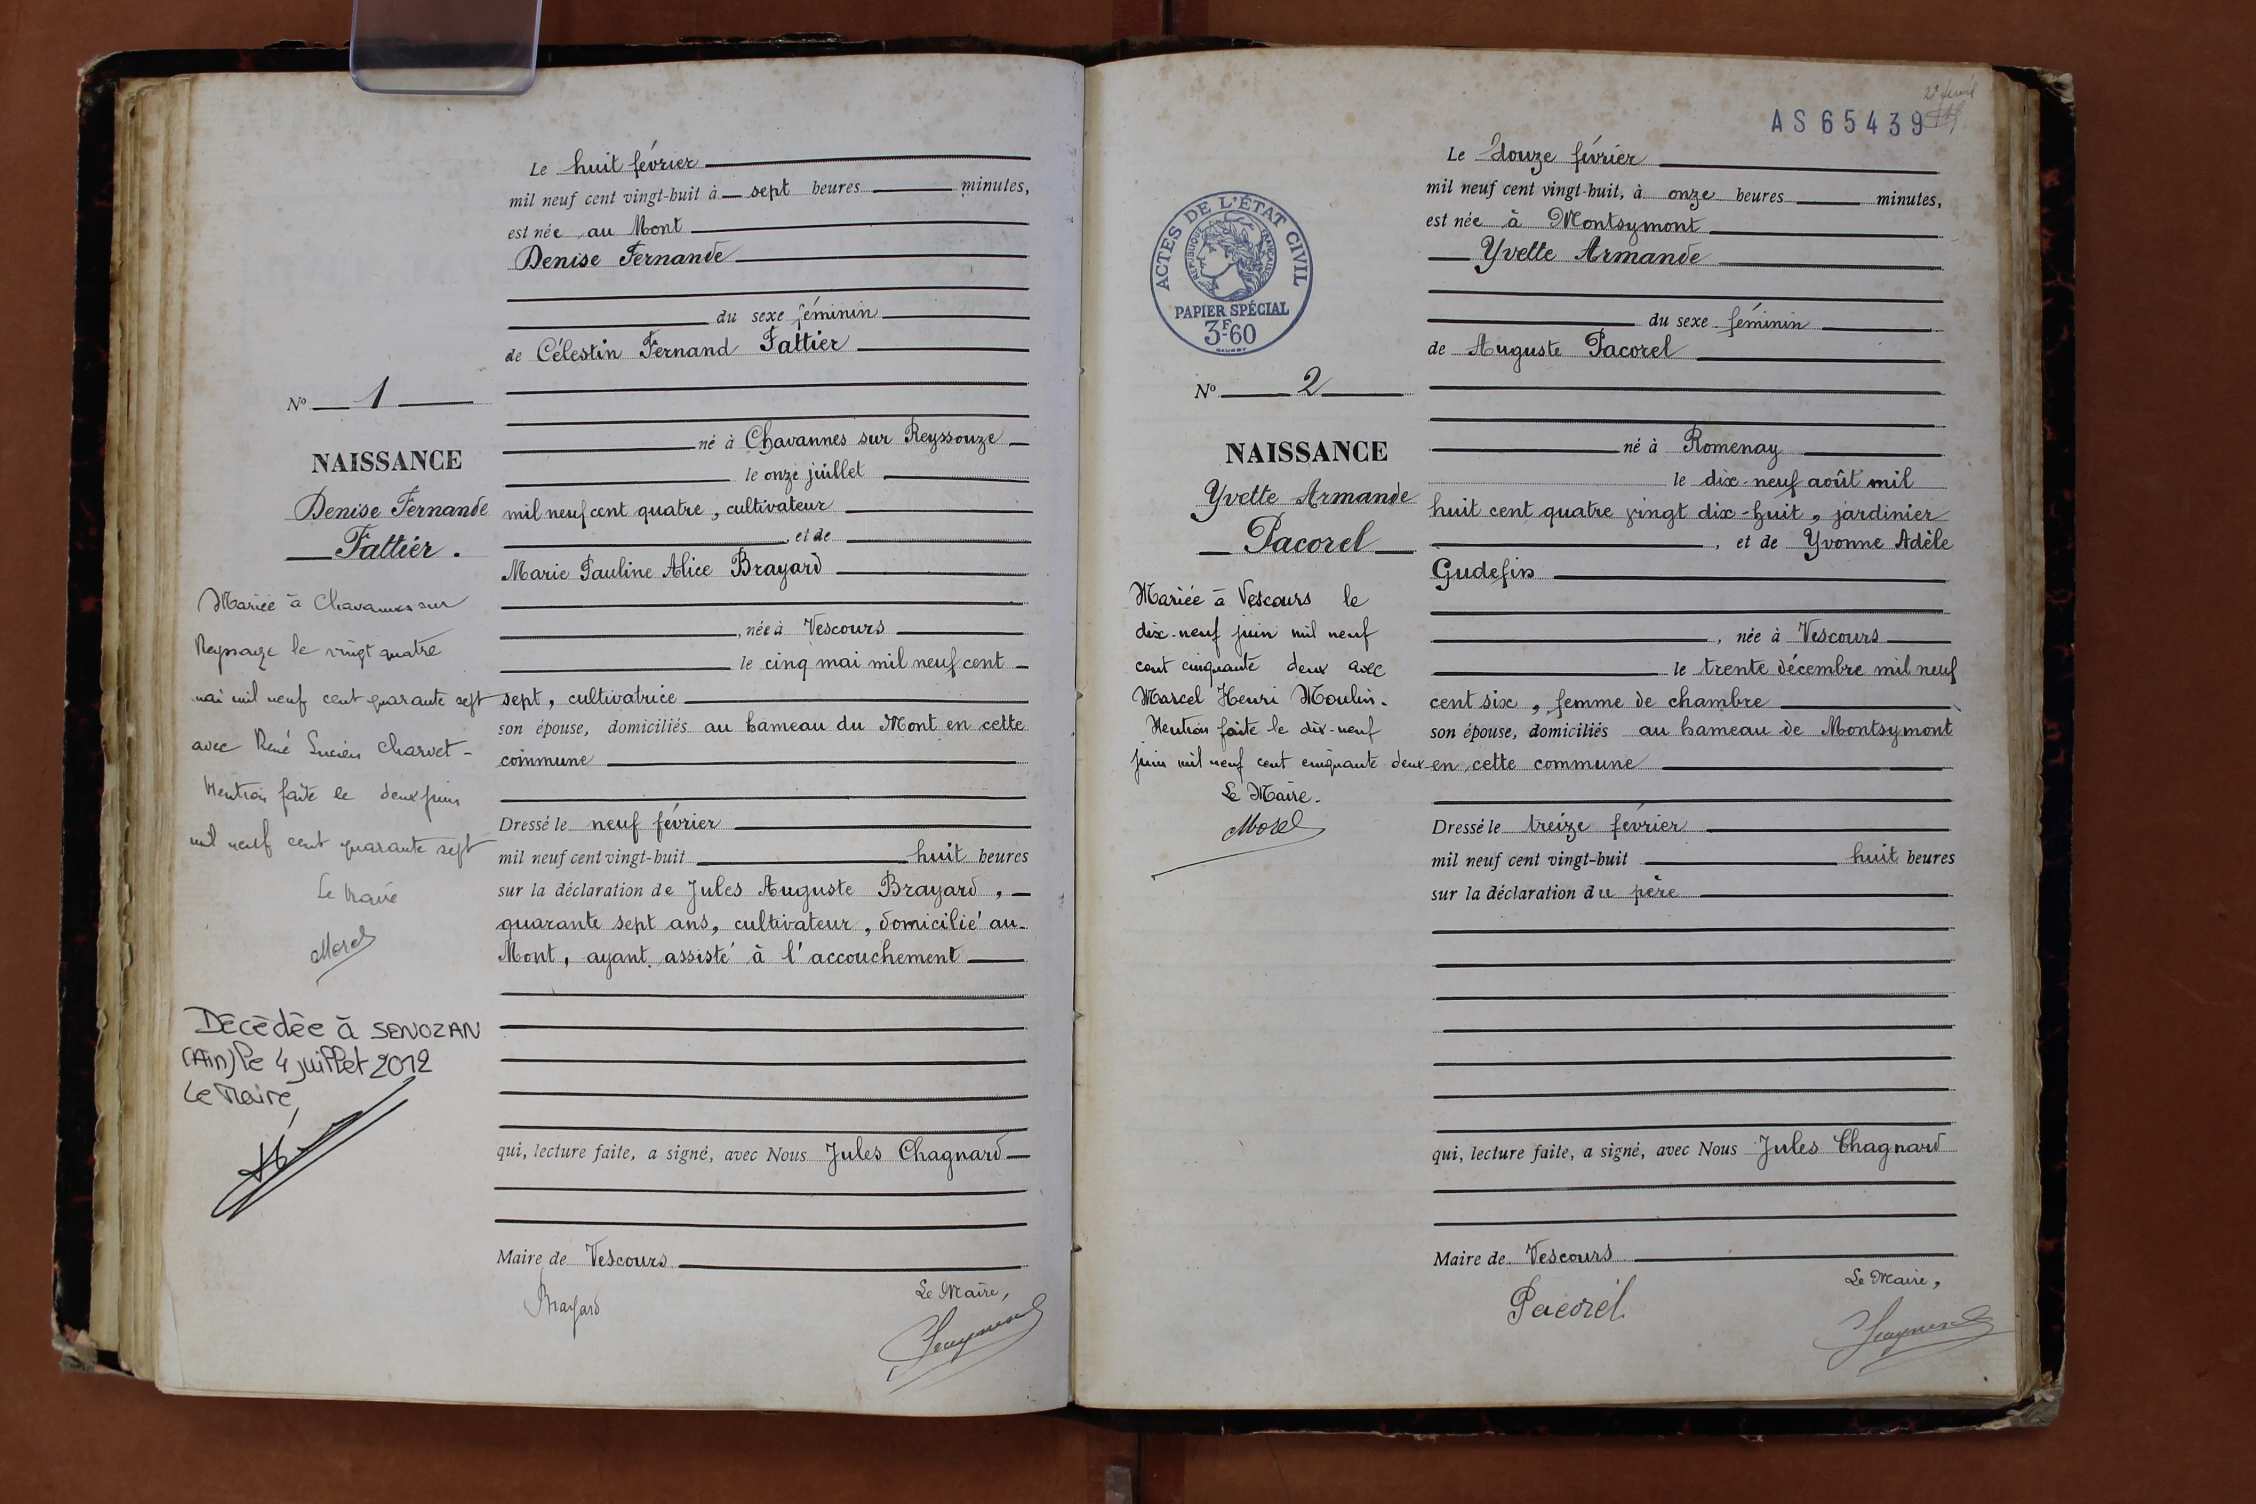 Le huit février
mil neuf cent vingt-huit à sept heures minutes,
est née au Mont
Denise Fernande
du sexe féminin
de Célestin Fernand Fattier
né à Chavannes sur Reyssouze
le onze juillet
mil neuf cent quatre, cultivateur
et de
Marie Pauline Alice Brayard
, née à Vescours
le cinq mai mil neuf cent
sept, cultivatrice
son épouse, domiciliés au hameau du Mont en cette
commune
Dressé le neuf février
mil neuf cent vingt-huit huit heures
sur la déclaration de Jules Auguste Brayard,
quarante sept ans, cultivateur, domicilié au
Mont, ayant assisté à l'accouchement
qui, lecture faite, a signé, avec Nous Jules Chagnard
Maire de Vescours
Le Maire,
Brayard
No 1
NAISSANCE
Denise Fernande
Fattier.
Mariée à Chavannes sur
Reyssouze le vingt quatre
mai mil neuf cent quarante sept
avec René Lucien Charvet-
Mention faite le deux juin
mil neuf cent quarante sept
Le Maire
Morel
Décédée à SENOZAN
(Ain) le 4 juillet 2012
Le Maire,
AS65439
Le douze février
mil neuf cent vingt-huit, à onze heures minutes,
est née à Montsymont
Yvette Armande
du sexe féminin
de Auguste Pacorel
né à Romenay
le dix-neuf août mil
huit cent quatre vingt dix-huit, jardinier
, et de Yvonne Adèle
Gudefin
, née à Vescours
le trente décembre mil neuf
cent six, femme de chambre
son épouse, domiciliés au hameau de Montsymont
en cette commune
Dressé le treize février
mil neuf cent vingt-huit huit heures
sur la déclaration du père
qui, lecture faite, a signé, avec Nous Jules Chagnard
Maire de Vescours
Le Maire,
Pacorel
ACTES DE L'ÉTAT CIVIL
RÉPUBLIQUE FRANÇAISE
PAPIER SPÉCIAL
3F60
No 2
NAISSANCE
Yvette Armande
Pacorel
Mariée à Vescours le
dix-neuf juin mil neuf
cent cinquante deux avec
Marcel Henri Moulin.
Mention faite le dix-neuf
juin mil neuf cent cinquante deux
Le Maire.
Morel